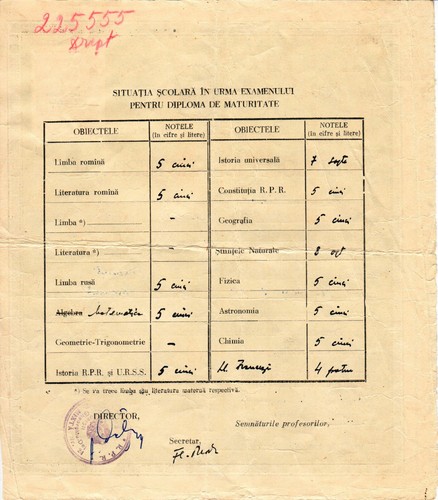 225555
Drept
SITUAȚIA ȘCOLARĂ ÎN URMA EXAMENULUI
PENTRU DIPLOMA DE MATURITATE
OBIECTELE NOTELE (în cifre și litere) OBIECTELE NOTELE (în cifre și litere)
Limba romînă 5 cinci Istoria universală 7 șapte
Literatura romînă 5 cinci Constituția R.P.R. 5 cinci
Limba *) – Geografia 5 cinci
Literatura *) – Științele Naturale 8 opt
Limba rusă 5 cinci Fizica 5 cinci
Algebra Matematica 5 cinci Astronomia 5 cinci
Geometrie-Trigonometrie – Chimia 5 cinci
Istoria R.P.R. și U.R.S.S. 5 cinci Franceză 4 patru
*) Se va trece limba sau literatura maternă respectivă.
DIRECTOR,
Semnăturile profesorilor,
Secretar,